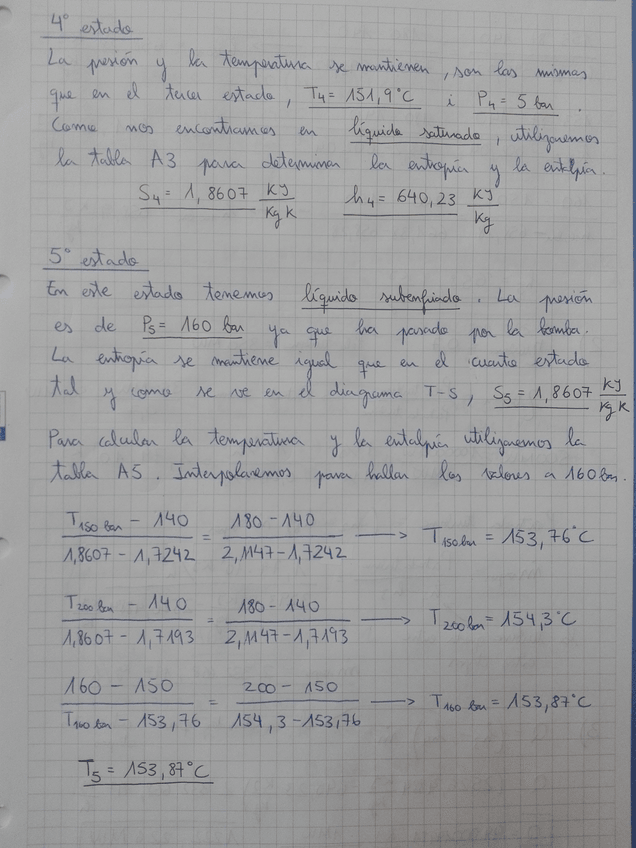 4º estado
La presión y la temperatura se mantienen, son las mismas
que en el tercer estado, T4 = 151,9°C i P4 = 5 bar.
Como nos encontramos en líquido saturado, utilizaremos
la tabla A3 para determinar la entropía y la entalpía.
S4 = 1,8607 KJ/Kg K h4 = 640,23 KJ/Kg
5º estado
En este estado tenemos líquido subenfriado. La presión
es de P5 = 160 bar ya que ha pasado por la bomba.
La entropía se mantiene igual que en el cuarto estado
tal y como se ve en el diagrama T-S, S5 = 1,8607 KJ/Kg K
Para calcular la temperatura y la entalpía utilizaremos la
tabla A5. Interpolaremos para hallar los valores a 160 bar.
(T150 bar - 140)/(1,8607 - 1,7242) = (180 - 140)/(2,1147 - 1,7242) → T150 bar = 153,76°C
(T200 bar - 140)/(1,8607 - 1,7193) = (180 - 140)/(2,1147 - 1,7193) → T200 bar = 154,3°C
(160 - 150)/(T160 bar - 153,76) = (200 - 150)/(154,3 - 153,76) → T160 bar = 153,87°C
T5 = 153,87°C